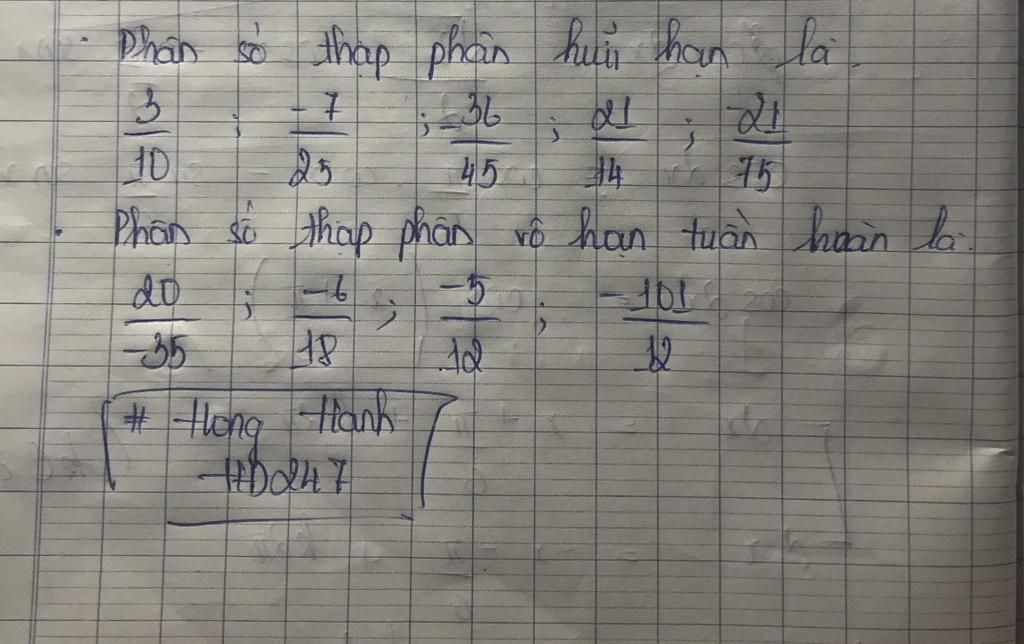 · Phân số thập phân hữu hạn là
3/10 ; -7/25 ; -36/45 ; 21/14 ; -21/75
· Phân số thập phân vô hạn tuần hoàn là.
20/-35 ; -6/18 ; -5/12 ; -101/12
# Hong Hanh
-HD247